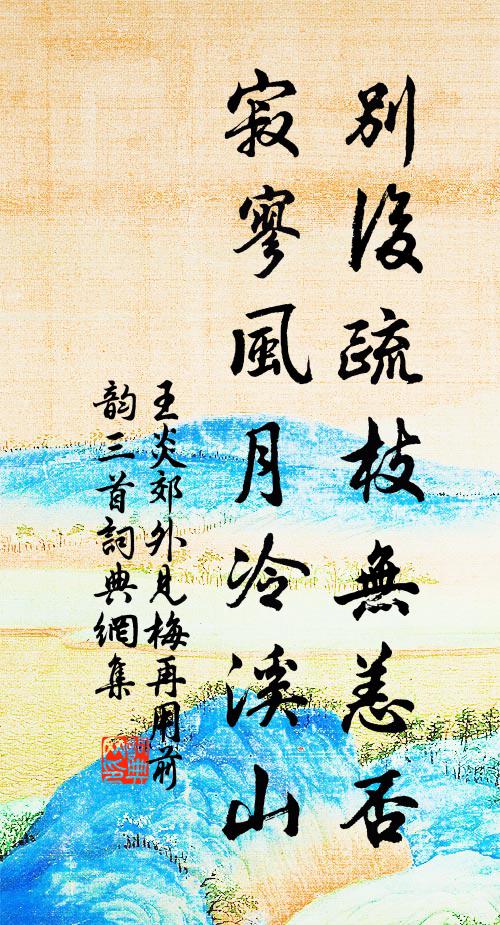 別後疏枝無恙否
寂寥風月冷溪山
王炎郊外見梅再用前
韵三首詞典網集